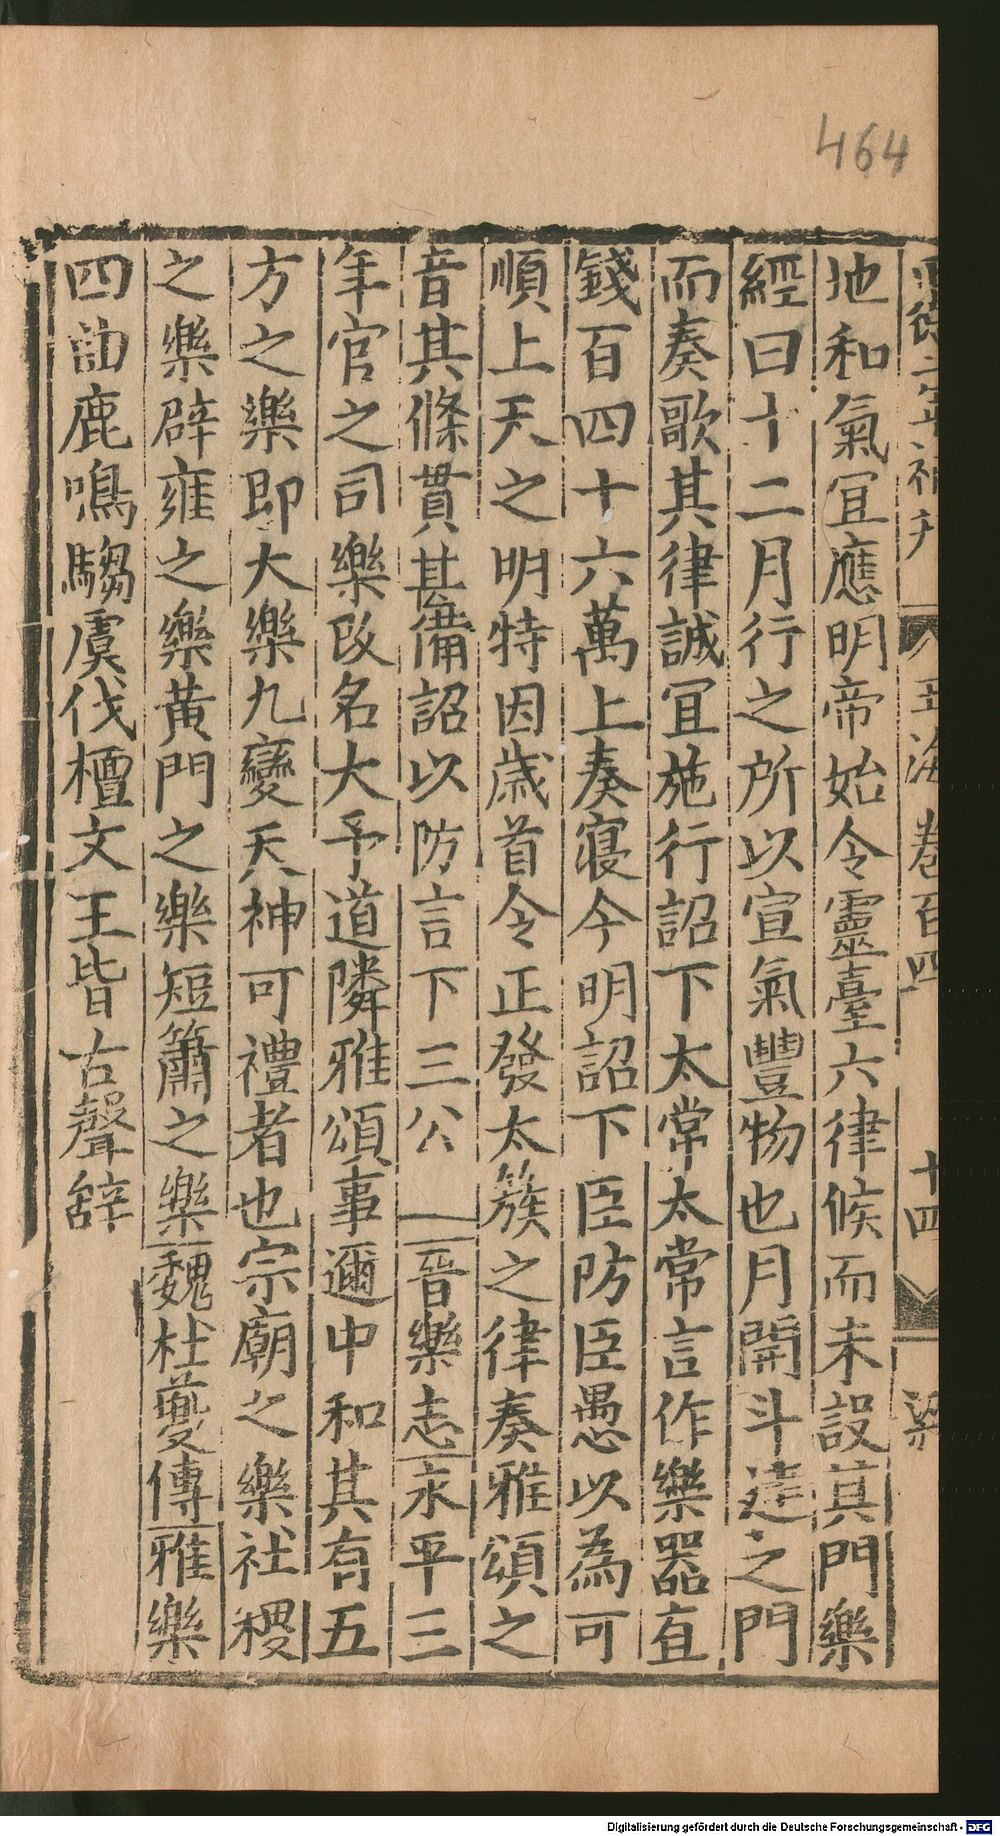 464
玉海卷百四
十四
地和氣宜應明帝始令靈臺六律候而未設其門樂
經曰十二月行之所以宣氣豐物也月開斗建之門
而奏歌其律誠宜施行詔下太常太常言作樂器直
錢百四十六萬上奏寑今明詔下臣防臣愚以為可
順上天之明特因歲首令正發太簇之律奏雅頌之
音其條貫甚備詔以防言下三公 晉樂志永平三
年官之司樂改名大予道隣雅頌事邇中和其有五
方之樂即大樂九變天神可禮者也宗廟之樂社稷
之樂辟雍之樂黃門之樂短簫之樂魏杜夔傳雅樂
四曲鹿鳴騶虞伐檀文王皆古聲辭
Digitalisierung gefördert durch die Deutsche Forschungsgemeinschaft - DFG